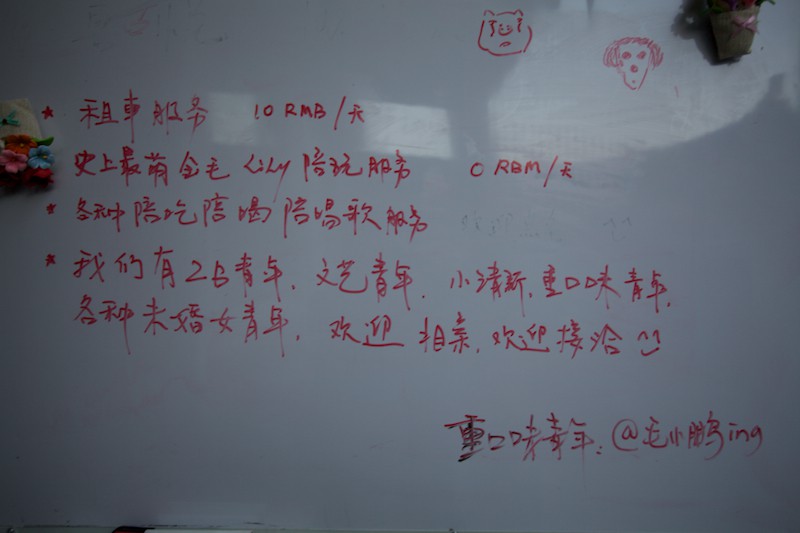 * 租車服务 10 RMB/天
史上最萌金毛 Lily 陪玩服务 0 RBM/天
* 各种陪吃陪喝陪唱歌服务
* 我们有2B青年、文艺青年、小清新、重口味青年、
各种未婚女青年,欢迎相亲,欢迎接洽
重口味青年:@毛小鹏ing